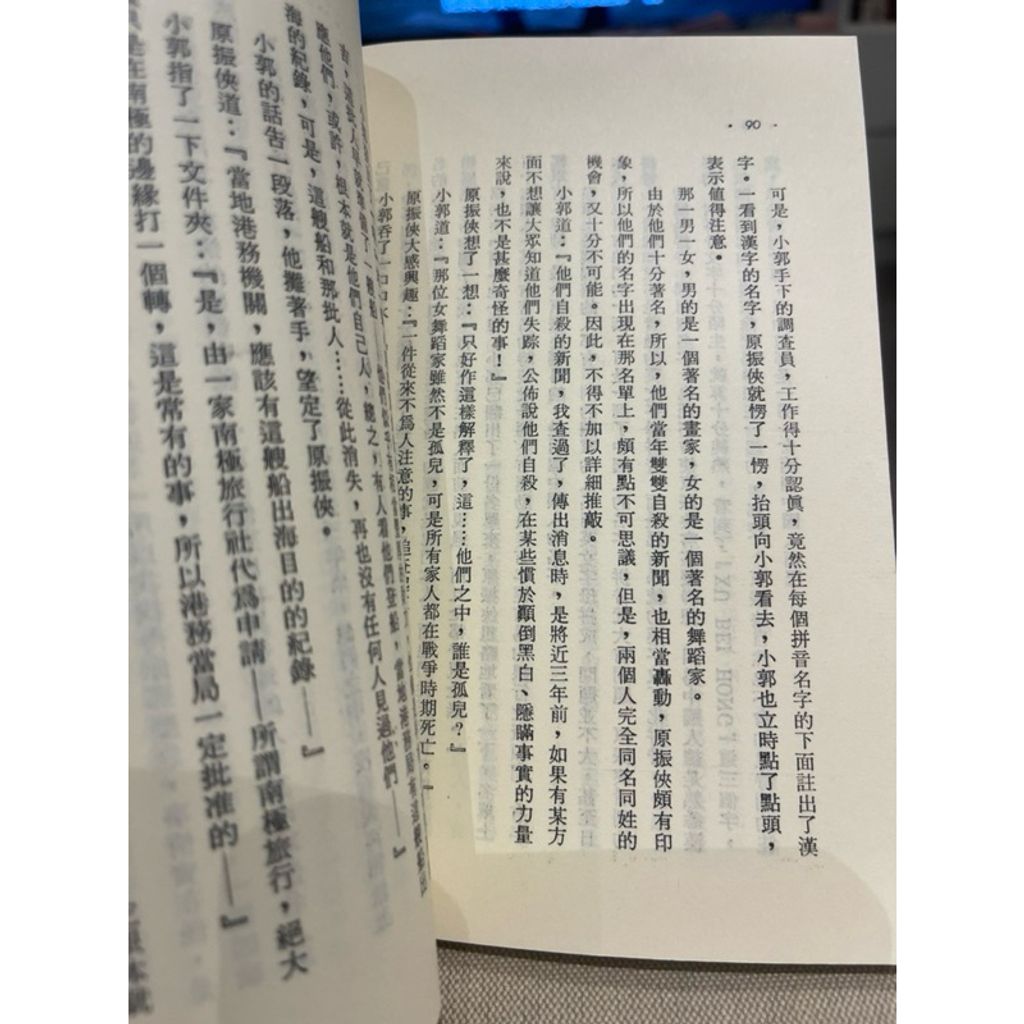 · 90 ·
可是，小郭手下的調查員，工作得十分認眞，竟然在每個拼音名字的下面註出了漢
字。一看到漢字的名字，原振俠就愣了一愣，抬頭向小郭看去，小郭也立時點了點頭，
表示值得注意。
那一男一女，男的是一個著名的畫家，女的是一個著名的舞蹈家。
由於他們十分著名，所以，他們當年雙雙自殺的新聞，也相當轟動，原振俠頗有印
象，所以他們的名字出現在那名單上，頗有點不可思議，但是，兩個人完全同名同姓的
機會，又十分不可能。因此，不得不加以詳細推敲。
小郭道：『他們自殺的新聞，我查過了，傳出消息時，是將近三年前，如果有某方
面不想讓大眾知道他們失踪，公佈說他們自殺，在某些慣於顚倒黑白、隱瞞事實的力量
來說，也不是甚麼奇怪的事！』
原振俠想了一想：『只好作這樣解釋了，這……他們之中，誰是孤兒？』
小郭道：『那位女舞蹈家雖然不是孤兒，可是所有家人都在戰爭時期死亡。』
原振俠大感興趣：『一件從來不爲人注意的事，
小郭吞了一口口水
有人看他們登船，當
應他們，或許，根本就是他們自己人，總之，
海的紀錄，可是，這艘船和那批人……從此消失，再也沒有任何人見過他們——』
小郭的話告一段落，他攤著手，望定了原振俠。
原振俠道：『當地港務機關，應該有這艘船出海目的的紀錄——』
小郭指了一下文件夾：『是，由一家南極旅行社代爲申請——所謂南極旅行，絕大
是在南極的邊緣打一個轉，這是常有的事，所以港務當局一定批准的——』